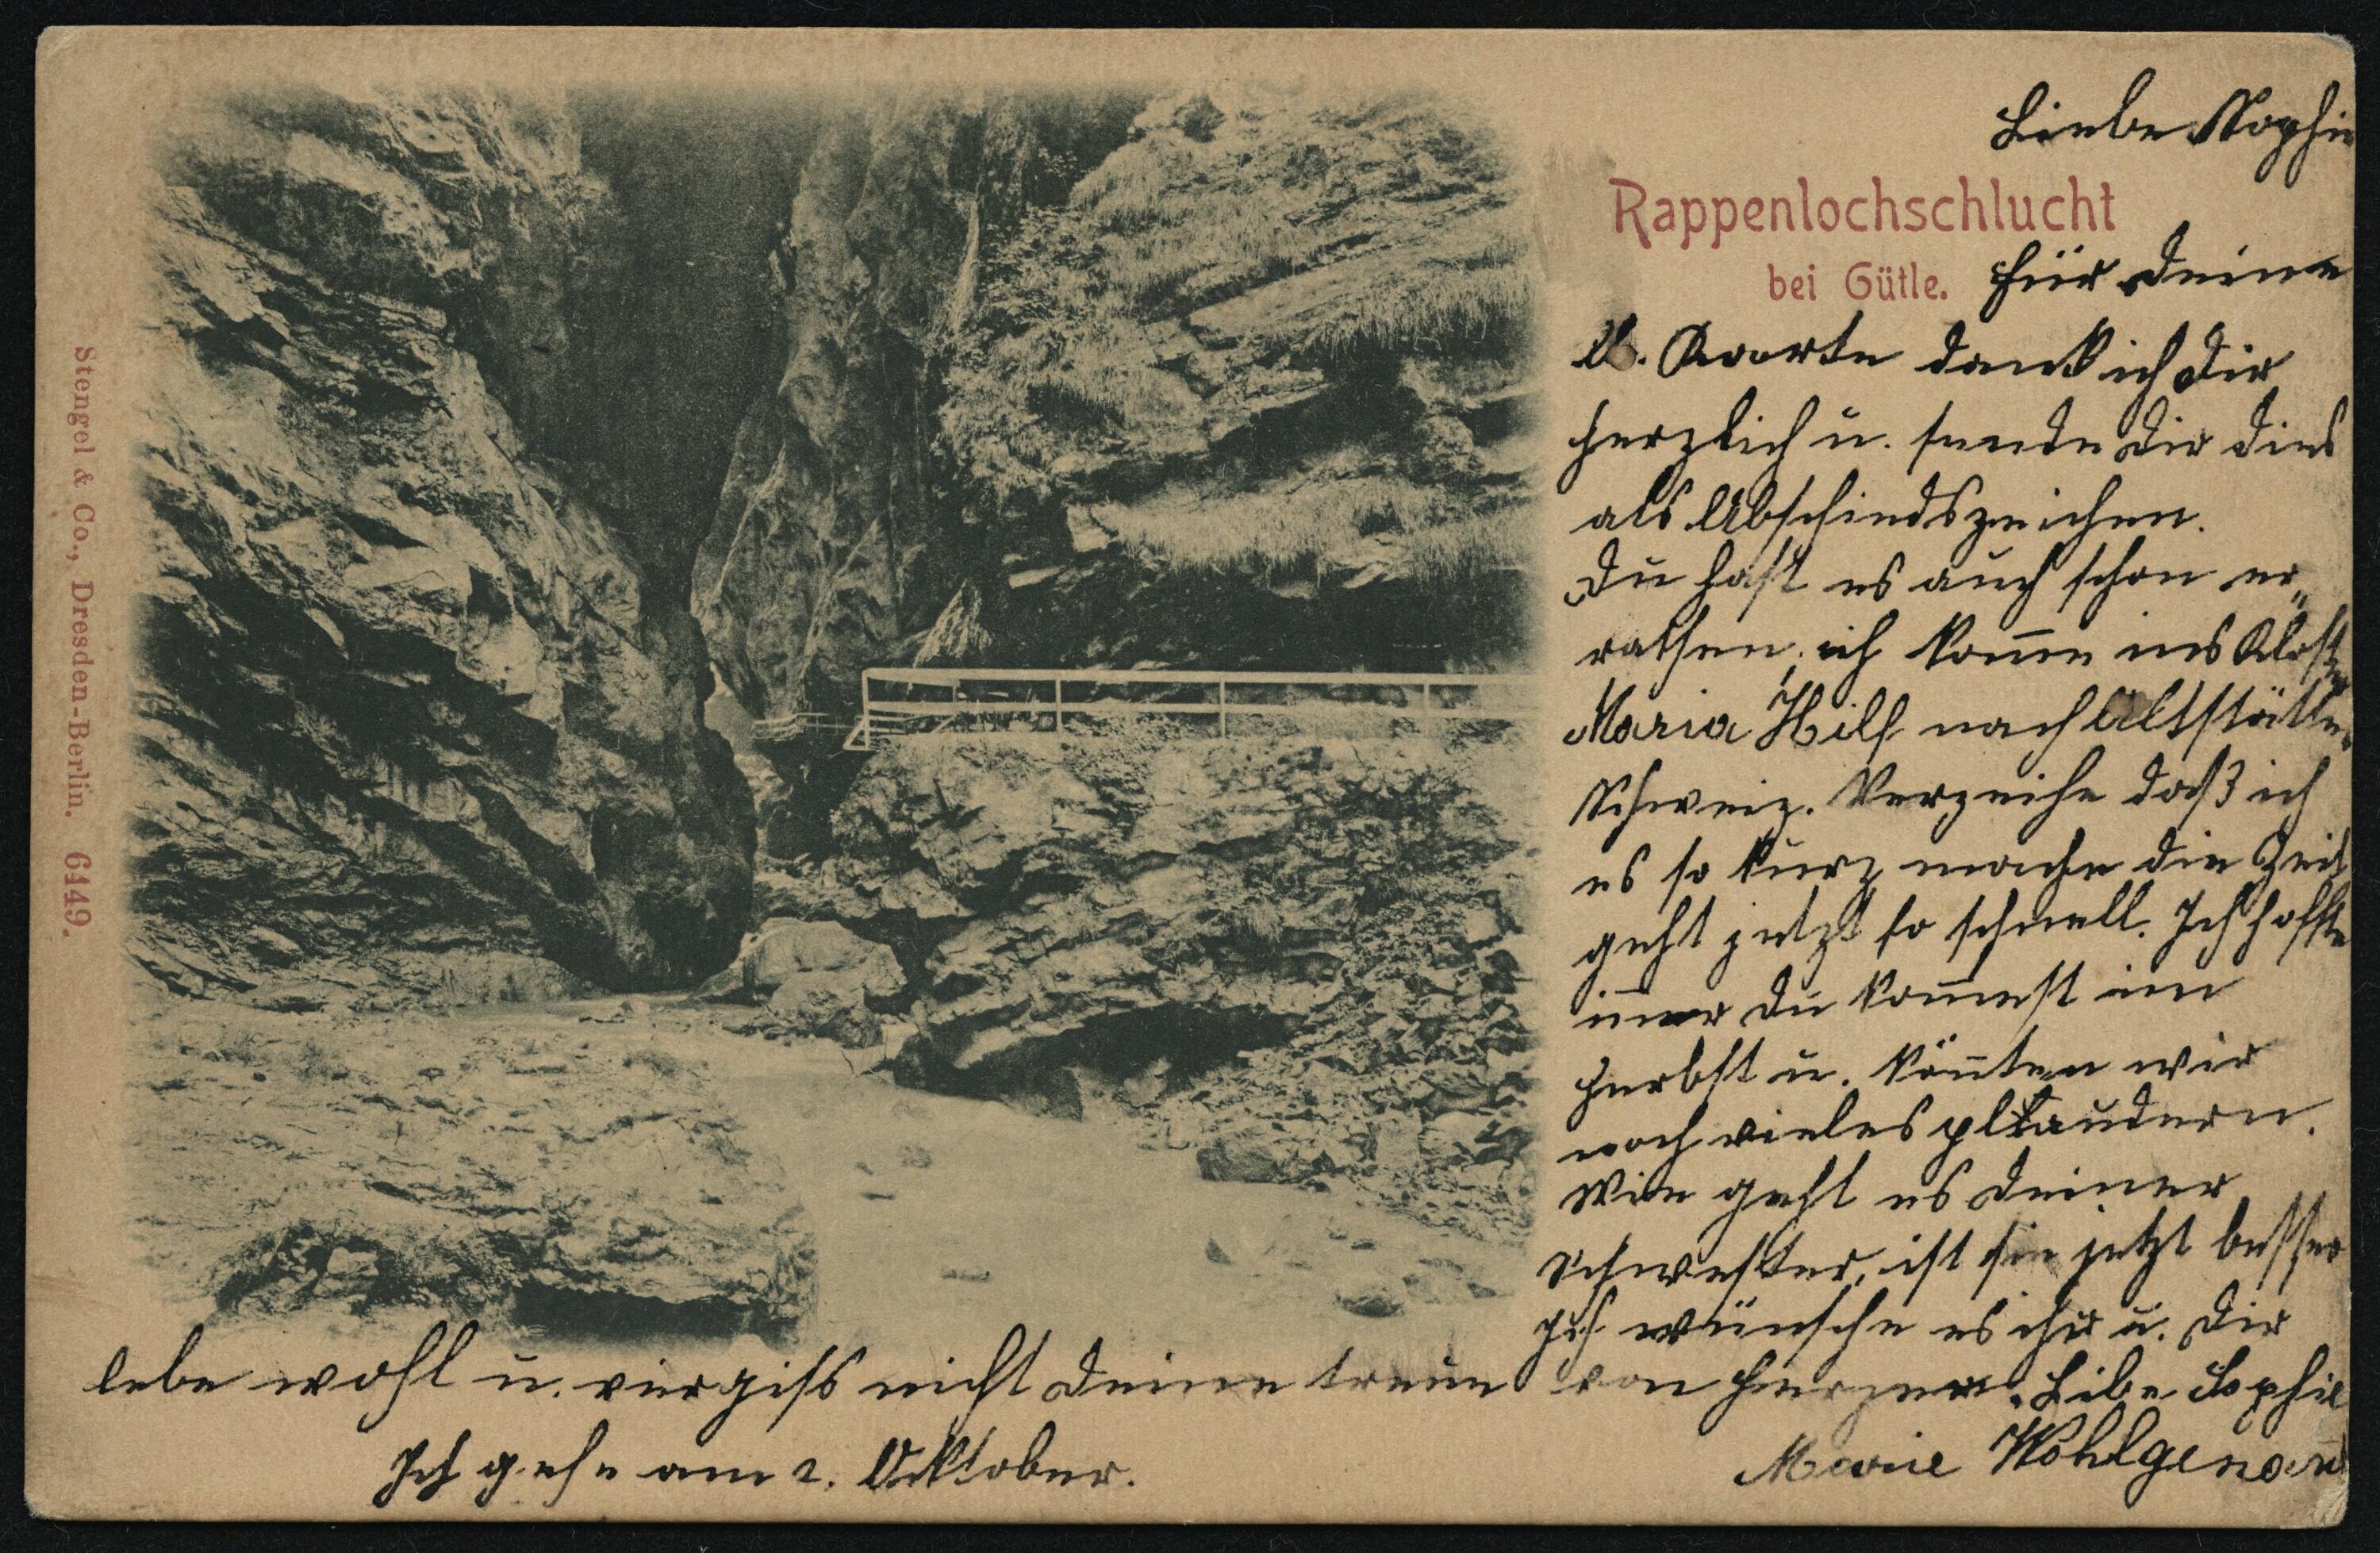 Liebe Sophie
Rappenlochschlucht
bei Gütle.
für deine
lb. Kaarte dank ich dir
herzlich u. sende dir dies
als Abschiedszeichen.
Du hast es auch schon er„
rathen, ich komme ins Kloster
Maria Hilf nach Altstätten
Schweiz. Verzeihe daß ich
es so kurz mache die Zeit
geht jetzt so schnell. Ich hoffte
im̅er du kom̅est im
Herbst u. kön̅ten wir
noch vieles plaudern.
Wie geht es deiner
Schwester, ist sie jetzt besser
Ich wünsche es ihr u. dir
von Herzen. Libe Sophie
lebe wohl u. viergiss nicht deine treue
Marie Wohlgenan̅t
Ich gehe am 2. Oktober.
Stengel & Co., Dresden-Berlin. 6149.